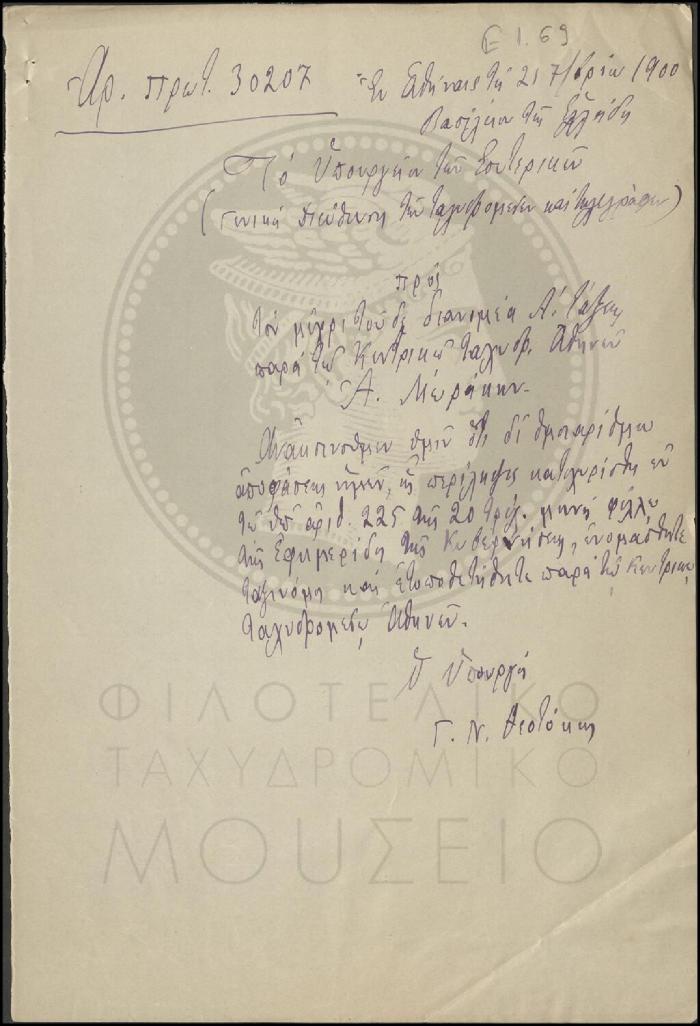 E 1.69
Αρ. πρωτ. 30207
Ἐν Ἀθήναις τῇ 21 7/βρίου 1900
Βασίλειον τῆς Ἑλλάδος
Τὸ Ὑπουργεῖον τῶν Ἐσωτερικῶν
(Γενικὴ διεύθυνσις τῶν ταχυδρομείων καὶ τηλεγράφων)
πρὸς
τὸν μέχρι τοῦδε διανομέα Α΄. τάξεως
παρὰ τῷ Κεντρικῷ ταχυδρ. Ἀθηνῶν
Α.
Ἀνακοινοῦμεν ὑμῖν ὅτι δι' ὑπ' ἀριθμ.
ἀποφάσεως ἡμῶν, ἧς περίληψις κατεχωρίσθη ἐν
τῷ ὑπ' ἀριθ. 225 τῆς 20 τρέχ. μηνὸς φύλλῳ
τῆς Ἐφημερίδος τῆς Κυβερνήσεως, ὠνομάσθητε
ταξινόμος καὶ ἐτοποθετήθητε παρὰ τῷ Κεντρικῷ
ταχυδρομείῳ Ἀθηνῶν.
Ὁ Ὑπουργὸς
Γ. Ν. Θεοτόκης
ΦΙΛΟΤΕΛΙΚΟ
ΤΑΧΥΔΡΟΜΙΚΟ
ΜΟΥΣΕΙΟ